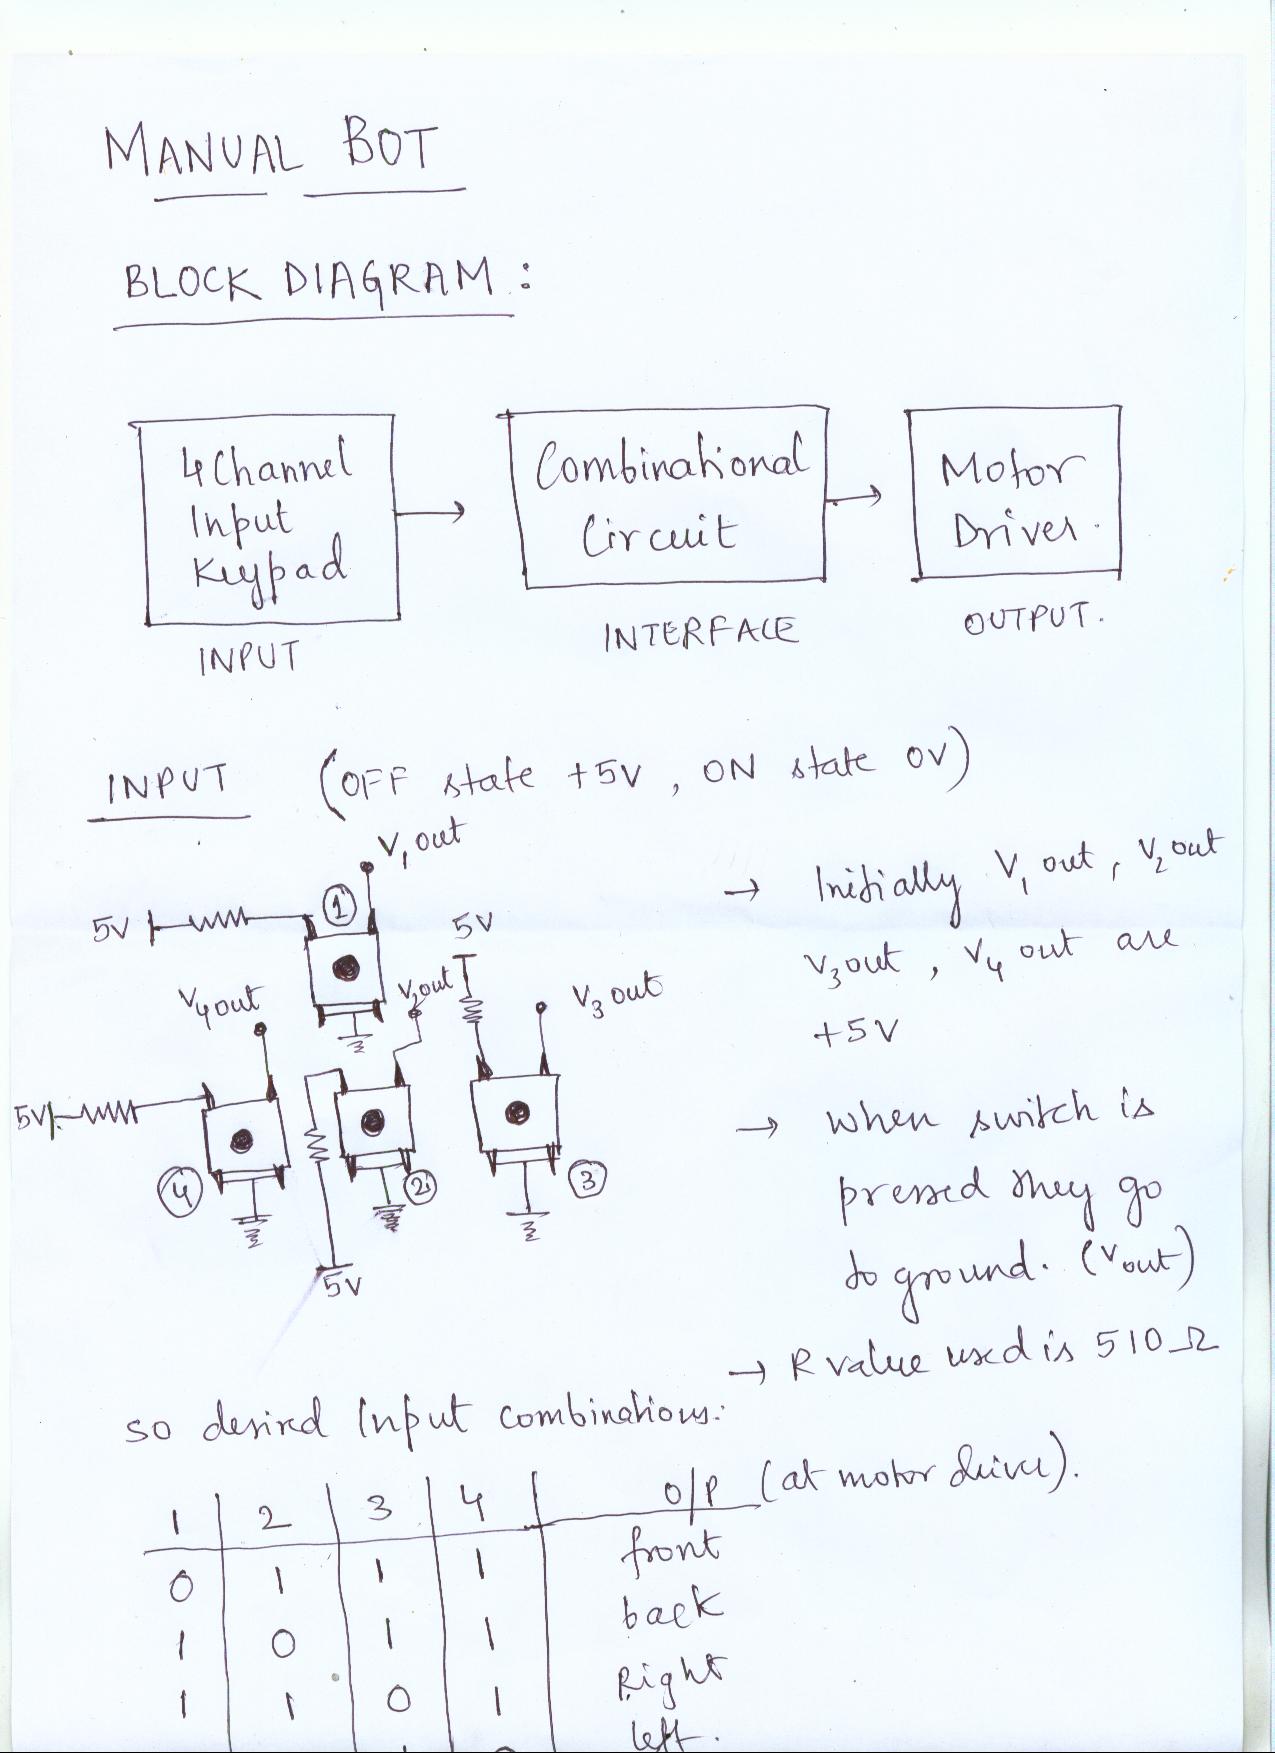 MANUAL BOT
BLOCK DIAGRAM :
4 Channel
Input
Keypad
INPUT
Combinational
Circuit
INTERFACE
Motor
Driver.
OUTPUT.
INPUT (OFF state +5V, ON state 0V)
V1 out
5V
1
5V
V4 out
V2 out
V3 out
5V
4
2
3
5V
→ Initially V1 out, V2 out
V3 out, V4 out are
+5V
→ When switch is
pressed they go
to ground. (Vout)
→ R value used is 510 Ω
so desired Input combinations:
1 2 3 4 O/P (at motor driver).
0 1 1 1 front
1 0 1 1 back
1 1 0 1 Right
left.